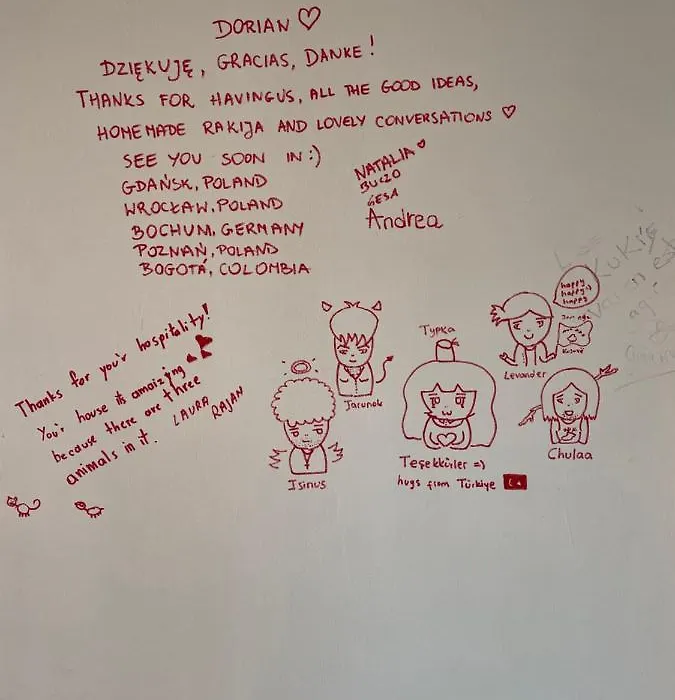 DORIAN ♡
DZIĘKUJĘ, GRACIAS, DANKE!
THANKS FOR HAVING US, ALL THE GOOD IDEAS,
HOMEMADE RAKIJA AND LOVELY CONVERSATIONS ♡
SEE YOU SOON IN :)
GDAŃSK, POLAND
WROCŁAW, POLAND
BOCHUM, GERMANY
POZNAŃ, POLAND
BOGOTÁ, COLOMBIA
NATALIA ♡
GESA
Andrea
Thanks for you'r hospitality!
You'r house is amaizing
because there are three
animals in it.
LAURA
RAJAN
Isinus
Jarunok
Typka
Teşekkürler =)
hugs from Türkiye
Levander
happy
happy
happy
Kosovë
Chulaa